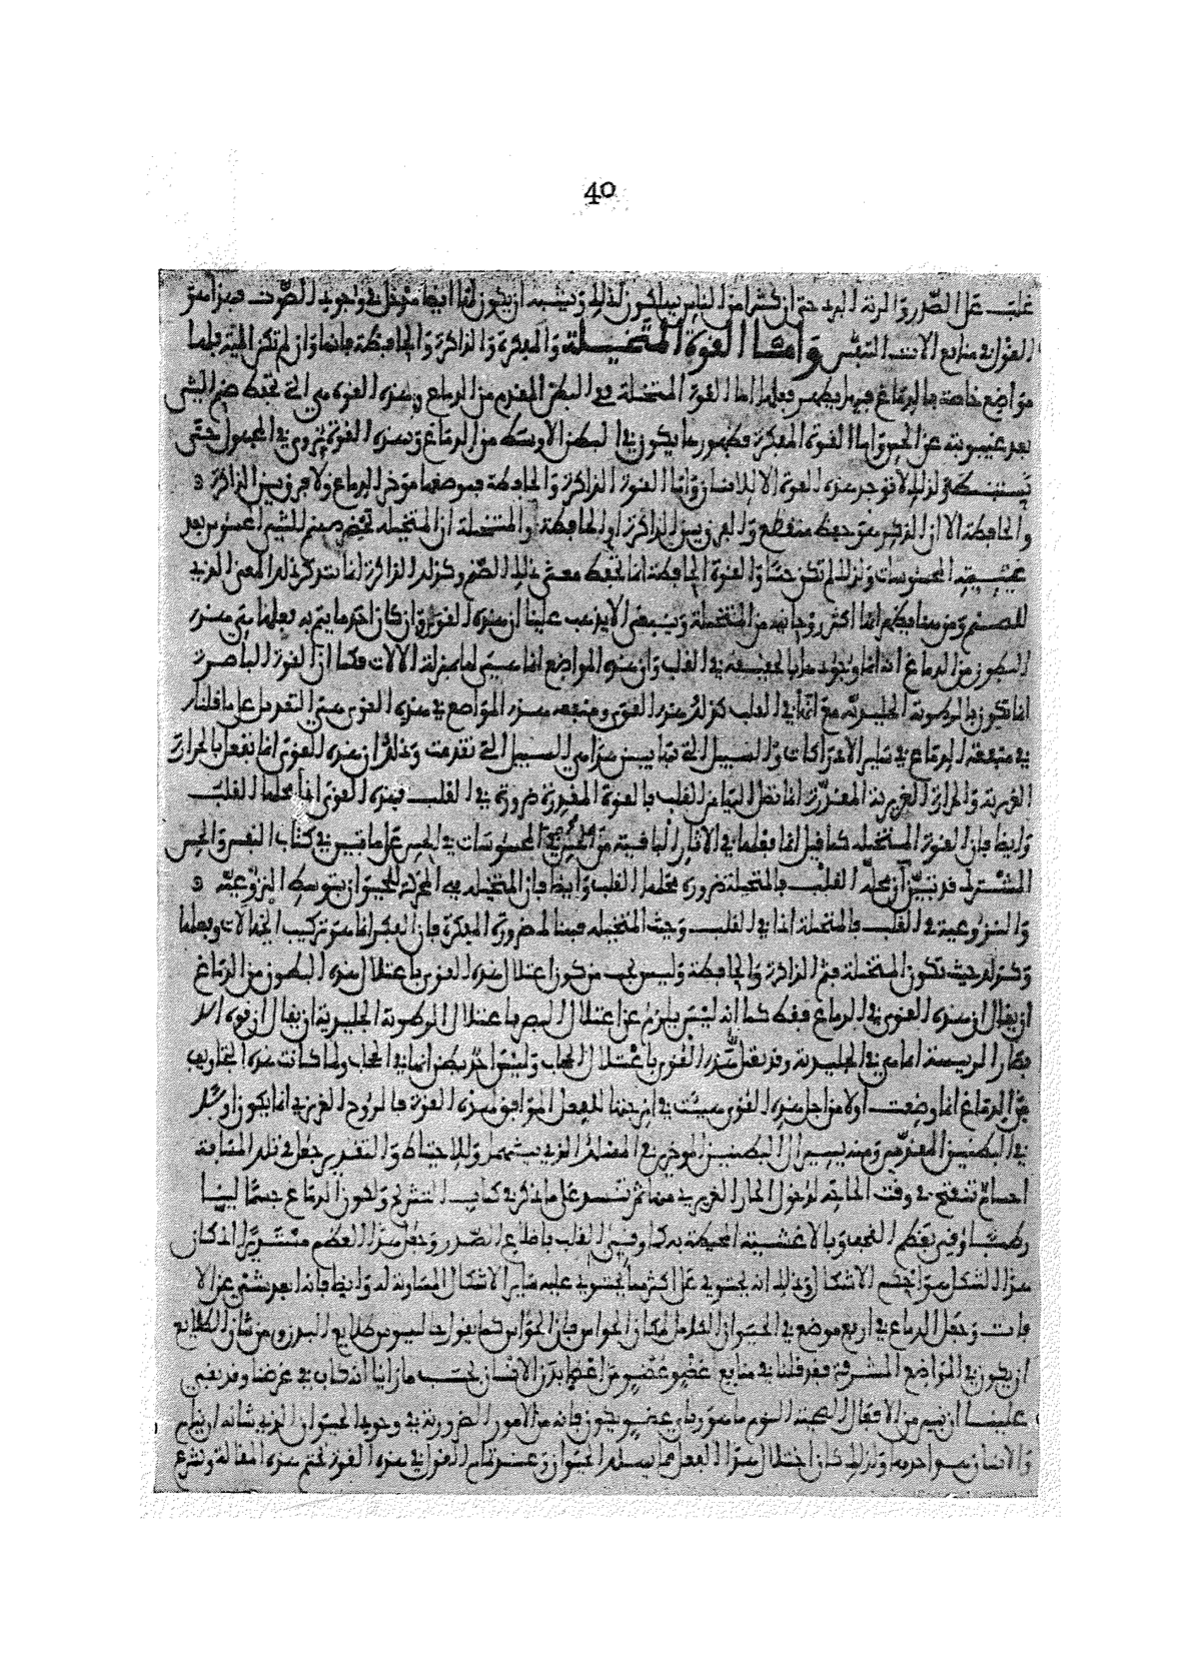 40
غلب على الصدر والرئة البرد حتى ان كثيرا من الناس يهلكون لذلك ويشبه ان يكون لها ايضا مدخل في وجود الصوت فهذا هو
القول في منافع الات التنفس واما القوة المتخيلة والمفكرة والذاكرة والحافظة فانها وان لم تكن الية فلها
مواضع خاصة بالدماغ فيها يظهر فعلها اما القوة المتخيلة ففي البطن المقدم من الدماغ وهذه القوة هي التي تحفظ صنم الشي
بعد غيبوبته عن الحس واما القوة المفكرة فظهورها يكون في البطن الاوسط من الدماغ وبهذه القوة يروى في المجهول حتى
يستنبط ولذلك لا توجد هذه القوة الا للانسان واما القوة الذاكرة والحافظة فموضعها مؤخر الدماغ ولا فرق بين الذاكرة
والحافظة الا ان الذكر هو حفظ منقطع والفرق بين الذاكرة او الحافظة والمتخيلة ان المتخيلة تحضر صنم الشي المحسوس بعد
غيبة المحسوسات ولذلك لم تكن حسا والقوة الحافظة انما تحفظ معنى ذلك الصنم وكذلك الذاكرة انما تذكر لها المعنى الذي
للصنم ومن هنا يظهر انها اكثر روحانية من المتخيلة وينبغي الا يذهب علينا ان هذه القوى وان كان احد ما يتم به فعلها هي هذه
البطون من الدماغ انه انما وجودها بالحقيقة في القلب وان هذه المواضع انما هي لها بمنزلة الالات فكما ان القوة الباصرة
انما تكون بالرطوبة الجليدية مع انها في القلب كذلك هذه القوى ومنفعة هذه المواضع في هذه القوى هي التعديل على ما قلناه
في منفعة الدماغ في سائر الادراكات والسبيل التي بها يبين هذا هي السبيل التي تقدمت وذلك ان هذه القوى انما تفعل بالحرارة
الغريزية والحرارة الغريزية المقدرة انما تصل اليها من القلب بالقوة المقدرة ضرورة في القلب فهذه القوى انما محلها القلب
وايضا فان القوة المتخيلة كما قيل انما فعلها في الاثار الباقية من المحسوسات في الحس على ما تبين في كتاب النفس والحس
المشترك قد تبين ان محله القلب فالمتخيلة ضرورة محلها القلب وايضا فان المتخيلة هي المحركة للحيوان بتوسط النزوعية
والنزوعية في القلب فالمتخيلة انما في القلب وحيث المتخيلة فهنالك ضرورة المفكرة فان الفكر انما هو تركيب الخيالات وفعلها
وكذلك حيث تكون المتخيلة فثم الذاكرة والحافظة وليس يجب من كون اعتلال هذه القوى باعتلال هذه البطون من الدماغ
ان يقال ان هذه القوى في الدماغ فقط كما انه ليس يلزم عن اعتلال البصر باعتلال الرطوبة الجليدية ان يقال ان قوة الا
بصار الرئيسة انما هي في الجليدية وقد تعتل هذه القوى باعتلال الحجاب وليس احد يظن انها في الحجاب ولما كانت هذه التجاويف
من الدماغ انما وضعت اولا من اجل هذه القوى هيئت في امزجتها للفعل الموافق لهذه القوة فالروح الغريزي انما يكون اولا
في البطنين المقدمين ومنه يسير الى البطنين المؤخرين في المنفذ الذي بينهما وللاحتياط والتقدير جعل في تلك المثابة
اجسام تنفتح في وقت الحاجة لدخول الحار الغريزي فيها ثم تنسد على ما ذكر في كتاب التشريح ولكون الدماغ جسما لينا
رطبا وقي بعظم القحف وبالاغشية المحيطة به كما وقي القلب باضلاع الصدر وجعل هذا العظم مستديرا اذ كان
هذا الشكل هو اتم الاشكال وذلك انه يحتوي على اكثر مما يحتوي عليه سائر الاشكال المساوية له وايضا فانه ابعد شي عن الا
فات وجعل الدماغ في ارفع موضع في الحيوان الكامل لمكان الحواس فان الحواس كما يقول جالينوس طلائع البدن ومن شان الطلائع
ان يكون في المواضع المشرفة فقد قلنا في منافع عضو عضو من اعضا بدن الانسان بحسب ما راينا انه كاف في غرضنا وقد بقي
علينا ان نبين من الافعال البدنية النوم ما هو وباي عضو يكون فانه من الامور الضرورية في وجود الحيوان الذي شانه ان ينام
والانسان هو احد هذا ولذلك كان اختلال هذا الفعل مما يهلك الحيوان وعند تمام القول في هذه القوة نختم هذه المقالة ونشرع